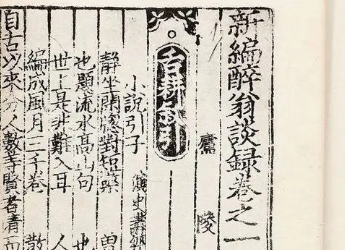 新編醉翁談録卷之一
廬陵
舌耕叙引
小說引子 演史講經
静坐閑窓對短檠 曽
也題流水髙山句 也
世上是非難入耳 人
編成風月三千卷 散
自古以來分人數等賢者清而